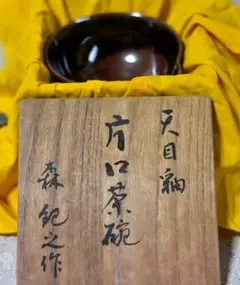 天目釉
片口茶碗
森 紀之作